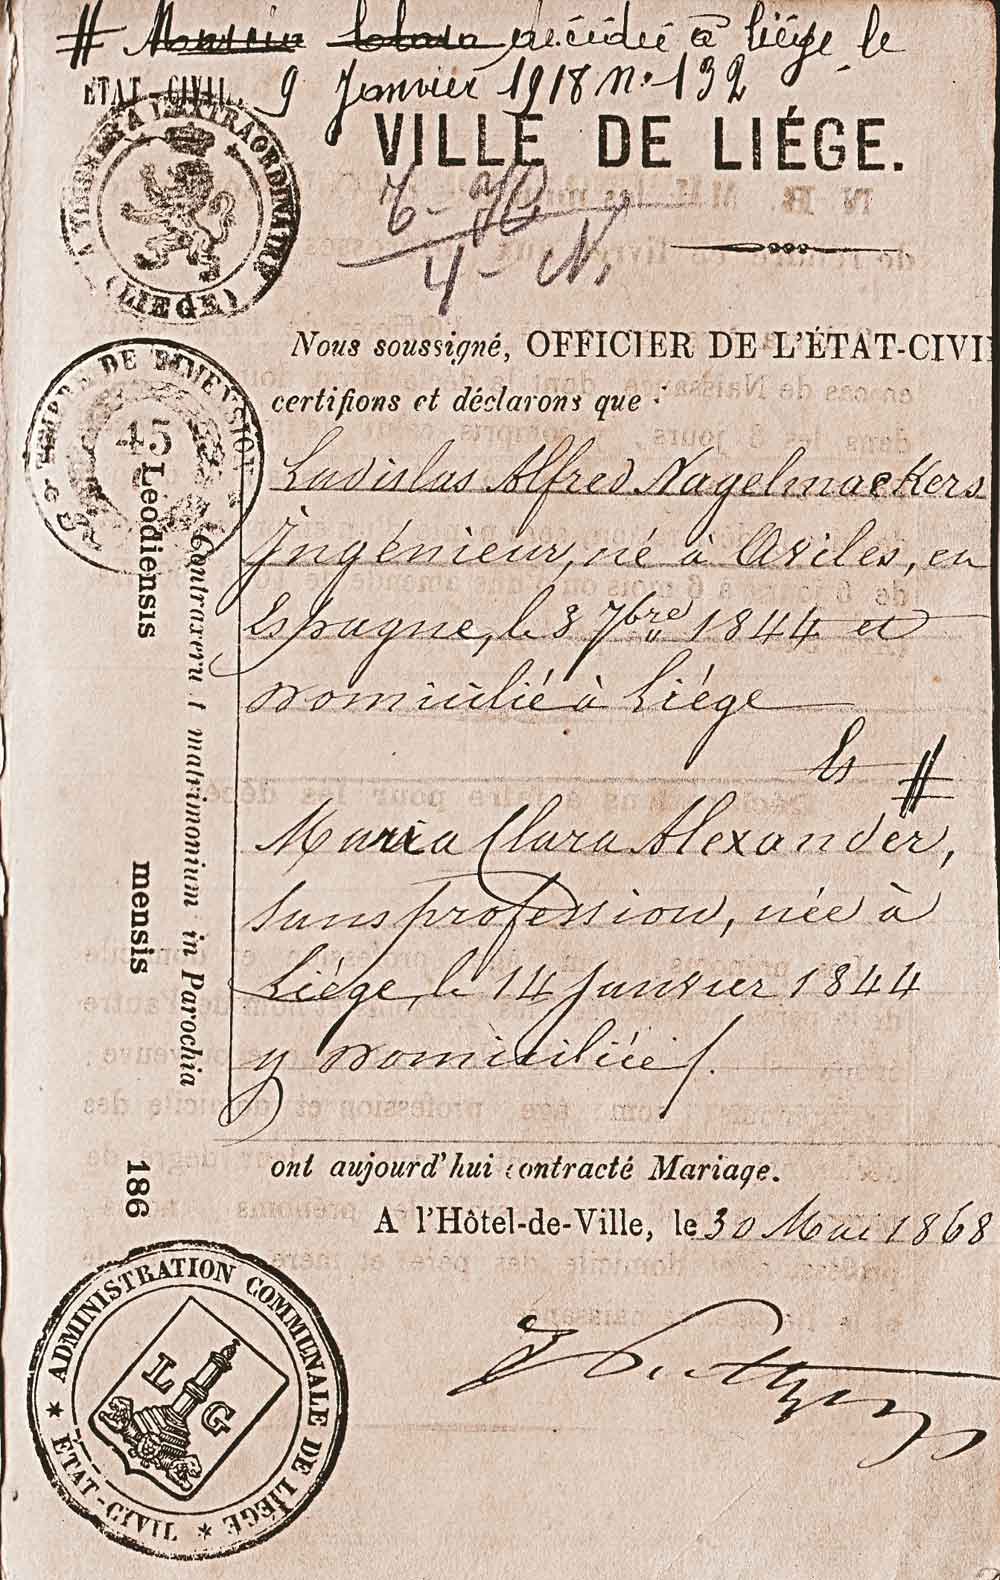 # Maria Clara décédée à Liége le
9 Janvier 1918 n° 192
ÉTAT-CIVIL.
VILLE DE LIÉGE.
TIMBRE A L'EXTRAORDINAIRE
(LIEGE)
4 - N.
Nous soussigné, OFFICIER DE L'ÉTAT-CIVI
certifions et déclarons que :
TIMBRE DE DIMENSION
45
Ladislas Alfred Nagelmackers
Ingénieur, né à Aviles, en
Espagne, le 3 7bre 1844 et
domicilié à Liége
Et #
Maria Clara Alexander,
sans profession, née à
Liége, le 14 Janvier 1844
y domiciliée/.
ont aujourd'hui contracté Mariage.
A l'Hôtel-de-Ville, le 30 Mai 1868
Contraxerunt matrimonium in Parochia
Leodiensis mensis 186
ADMINISTRATION COMMUNALE DE LIÉGE
* ÉTAT-CIVIL *
L G